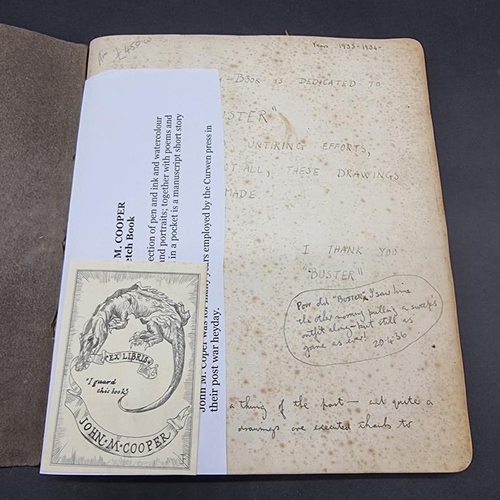 Year 1933-1934-
-BOOK IS DEDICATED TO
STER"
UNTIRING EFFORTS,
T ALL, THESE DRAWINGS
MADE
I THANK YOU
"BUSTER"
Poor old "BUSTER", I saw him
the other morning pulling a sweeps
outfit along - but still as
game as ever!
20·4·36
a thing of the past — and quite a
drawings are executed thanks to
M. COOPER
etch Book
ection of pen and ink and watercolour
and portraits; together with poems and
in a pocket is a manuscript short story
John M. Coper was for many years employed by the Curwen press in
their post war heyday.
EX LIBRIS
"I guard
this book"
JOHN·M·COOPER